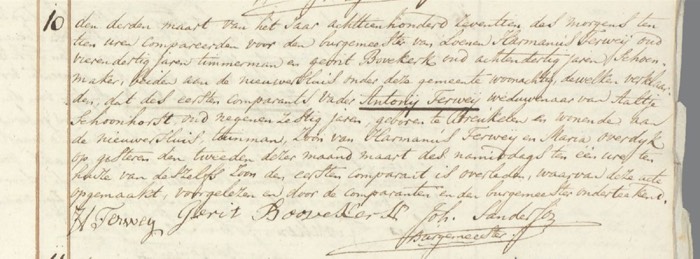 10 den derden maart van het Jaar achttienhonderd zeventien des morgens ten
tien uren compareerden voor den burgemeester van Loenen Harmanus Terweij oud
vierendertig jaren timmerman en gerrit Bovekerk oud achtendertig jaren Schoen
maker, beiden aan de nieuwersluis onder deze gemeente woonachtig, dewelke verklaar
den, dat des eersten comparants Vader Antonij Terweij weduwenaar van Aaltje
Schoonhorst oud negen en Zestig jaren geboren te Breukelen en wonende aan
de nieuwersluis timman, Zoon van Harmanus Terweij en Maria overdijk
op gisteren den tweeden dezer maand maart des namiddags ten een ure ten
huize van deszelfs Zoon den eersten comparant is overleden, waarvan deze acte
opgemaakt, voorgelezen en door de comparanten en den burgemeester onderteekend.
H Terweij Gerit Boovekerk Joh. Sanderson
Burgemeester